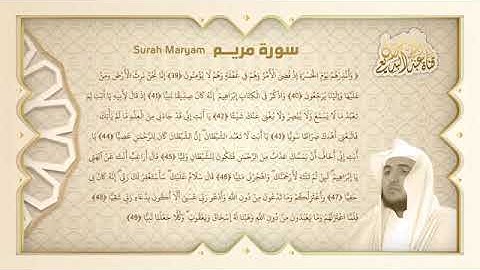 Surah Maryam سورة مريم
﴿ وَأَنْذِرْهُمْ يَوْمَ الْحَسْرَةِ إِذْ قُضِيَ الْأَمْرُ وَهُمْ فِي غَفْلَةٍ وَهُمْ لَا يُؤْمِنُونَ (39) إِنَّا نَحْنُ نَرِثُ الْأَرْضَ وَمَنْ
عَلَيْهَا وَإِلَيْنَا يُرْجَعُونَ (40) وَاذْكُرْ فِي الْكِتَابِ إِبْرَاهِيمَ إِنَّهُ كَانَ صِدِّيقًا نَبِيًّا (41) إِذْ قَالَ لِأَبِيهِ يَا أَبَتِ لِمَ
تَعْبُدُ مَا لَا يَسْمَعُ وَلَا يُبْصِرُ وَلَا يُغْنِي عَنْكَ شَيْئًا (42) يَا أَبَتِ إِنِّي قَدْ جَاءَنِي مِنَ الْعِلْمِ مَا لَمْ يَأْتِكَ
فَاتَّبِعْنِي أَهْدِكَ صِرَاطًا سَوِيًّا (43) يَا أَبَتِ لَا تَعْبُدِ الشَّيْطَانَ إِنَّ الشَّيْطَانَ كَانَ لِلرَّحْمَنِ عَصِيًّا (44) يَا
أَبَتِ إِنِّي أَخَافُ أَنْ يَمَسَّكَ عَذَابٌ مِنَ الرَّحْمَنِ فَتَكُونَ لِلشَّيْطَانِ وَلِيًّا (45) قَالَ أَرَاغِبٌ أَنْتَ عَنْ آلِهَتِي
يَا إِبْرَاهِيمُ لَئِنْ لَمْ تَنْتَهِ لَأَرْجُمَنَّكَ وَاهْجُرْنِي مَلِيًّا (46) قَالَ سَلَامٌ عَلَيْكَ سَأَسْتَغْفِرُ لَكَ رَبِّي إِنَّهُ كَانَ بِي
حَفِيًّا (47) وَأَعْتَزِلُكُمْ وَمَا تَدْعُونَ مِنْ دُونِ اللَّهِ وَأَدْعُو رَبِّي عَسَى أَلَّا أَكُونَ بِدُعَاءِ رَبِّي شَقِيًّا (48)
فَلَمَّا اعْتَزَلَهُمْ وَمَا يَعْبُدُونَ مِنْ دُونِ اللَّهِ وَهَبْنَا لَهُ إِسْحَاقَ وَيَعْقُوبَ وَكُلًّا جَعَلْنَا نَبِيًّا (49)